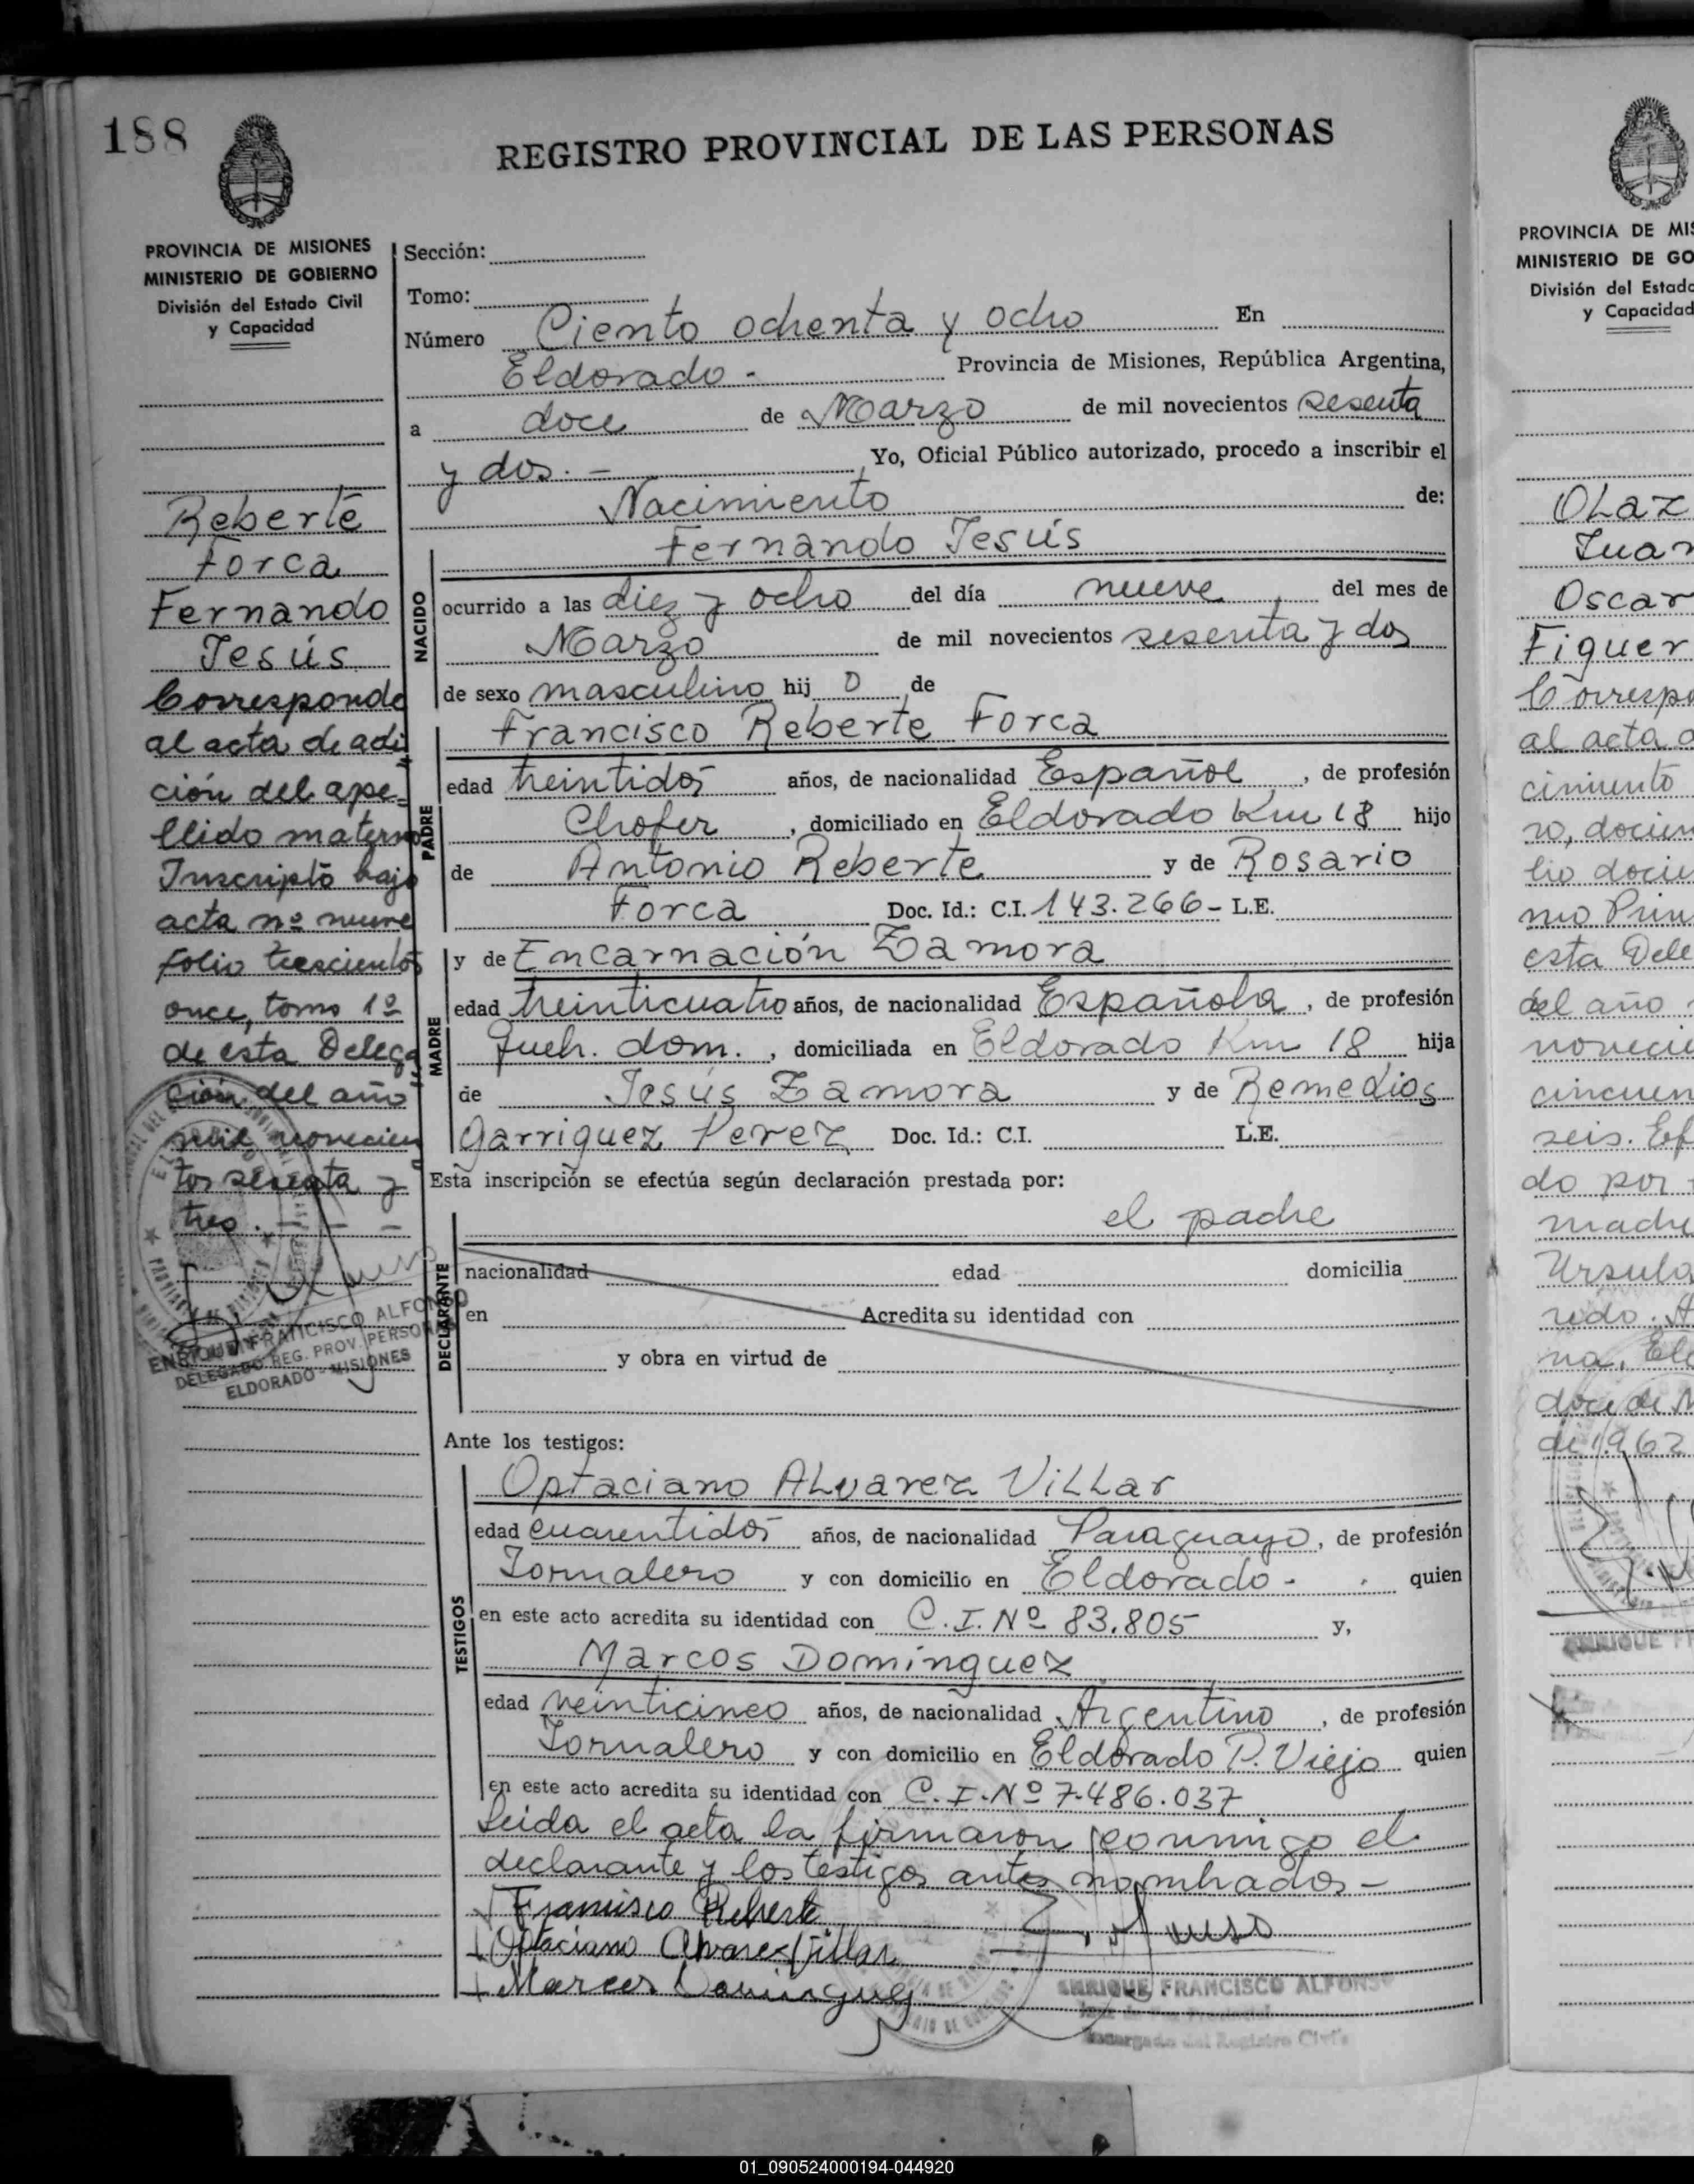 188
REGISTRO PROVINCIAL DE LAS PERSONAS
PROVINCIA DE MISIONES
MINISTERIO DE GOBIERNO
División del Estado Civil
y Capacidad
Reberte
Forca
Fernando
Jesús
Corresponde
al acta de adi
ción del ape-
llido materno
Inscripto bajo
acta nº nueve
folio trescientos
once, tomo 1º
de esta Delega
ción del año
mil novecien
tos sesenta y
tres. - - -
ENRIQUE FRANCISCO ALFONSO
DELEGADO REG. PROV. PERSONAS
ELDORADO - MISIONES
Sección:
Tomo:
Número Ciento ochenta y ocho En
Eldorado - Provincia de Misiones, República Argentina,
a doce de Marzo de mil novecientos sesenta
y dos. - Yo, Oficial Público autorizado, procedo a inscribir el
Nacimiento de:
NACIDO
Fernando Jesús
ocurrido a las diez y ocho del día nueve del mes de
Marzo de mil novecientos sesenta y dos
de sexo masculino hij o de
PADRE
Francisco Reberte Forca
edad treintidos años, de nacionalidad Español, de profesión
Chofer, domiciliado en Eldorado Km 18 hijo
de Antonio Reberte y de Rosario
Forca Doc. Id.: C.I. 143.266- L.E.
MADRE
y de Encarnación Zamora
edad treinticuatro años, de nacionalidad Española, de profesión
Queh. dom., domiciliada en Eldorado Km 18 hija
de Jesús Zamora y de Remedios
Garriguez Perez Doc. Id.: C.I. L.E.
Esta inscripción se efectúa según declaración prestada por:
el padre
DECLARANTE
nacionalidad edad domicilia
en Acredita su identidad con
y obra en virtud de
Ante los testigos:
TESTIGOS
Optaciano Alvarez Villar
edad cuarentidos años, de nacionalidad Paraguayo, de profesión
Jornalero y con domicilio en Eldorado - quien
en este acto acredita su identidad con C.I. Nº 83.805 y,
Marcos Dominguez
edad veinticinco años, de nacionalidad Argentino, de profesión
Jornalero y con domicilio en Eldorado P. Viejo quien
en este acto acredita su identidad con C.I. Nº 7.486.037
Leida el acta la firmaron conmigo el
declarante y los testigos antes nombrados -
Francisco Reberte
Optaciano Alvarez Villar
Marcos Dominguez
ENRIQUE FRANCISCO ALFONSO
Encargado del Registro Civil
PROVINCIA DE MIS
MINISTERIO DE GO
División del Estado
y Capacidad
OLaz
Juan
Oscar
Figuer
Correspo
al acta
cimiento
ro, docien
lio docie
mo Prim
esta Dele
del año
novecie
cincuen
seis.
do por
madre
Ursula
na, Eld
doce de M
de 1962
ENRIQUE FR
01_090524000194-044920